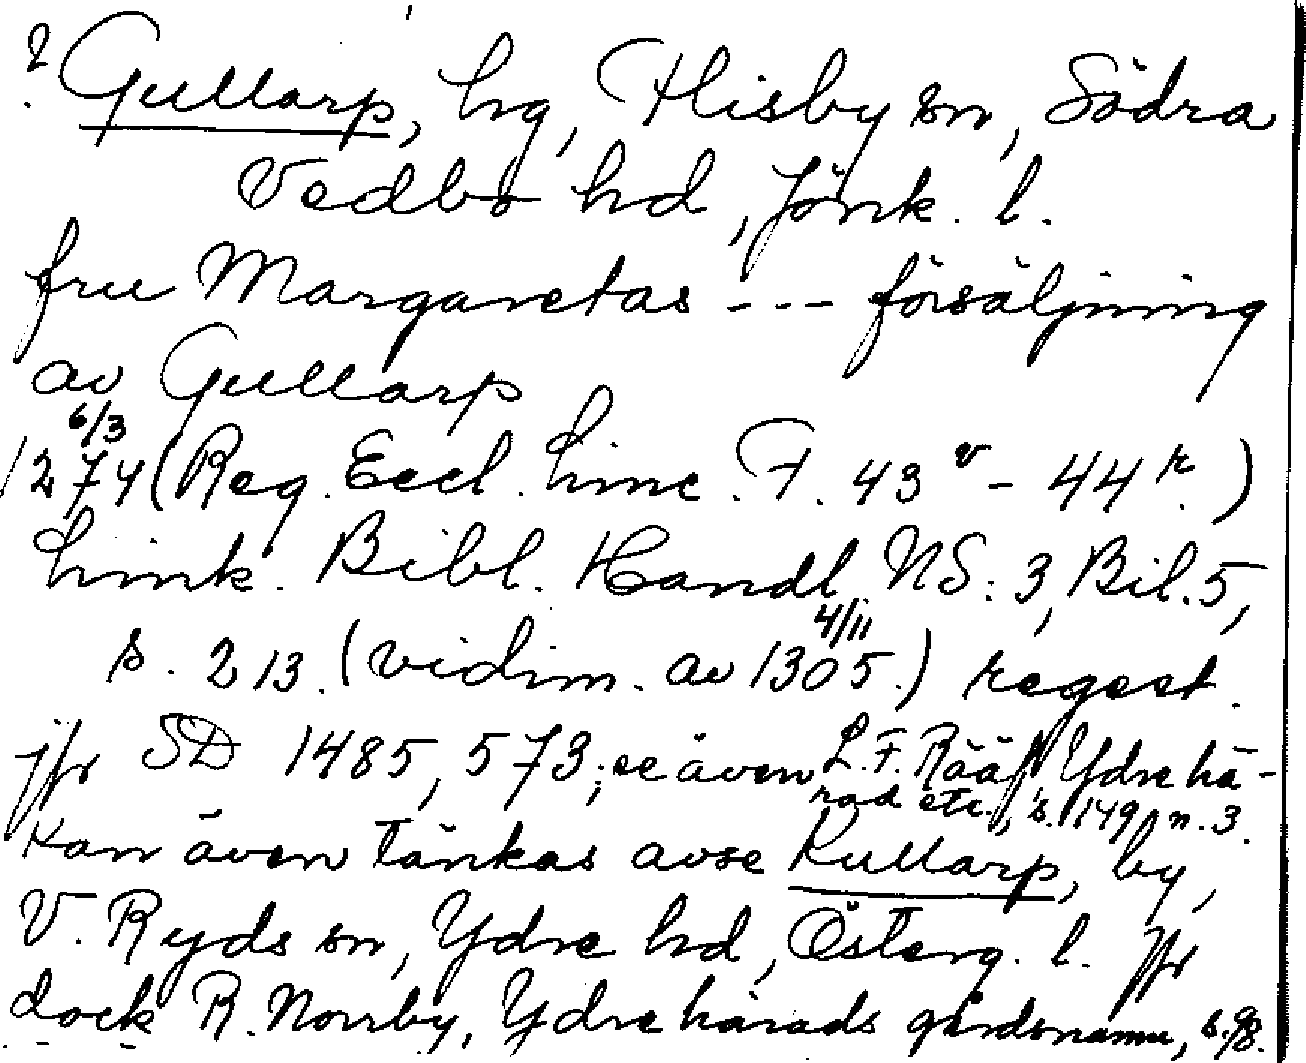 ? Gullarp, hg, Flisby sn, Södra
Vedbo hd, Jönk. l.
fru Margaretas --- försäljning
av Gullarp
6/3
1274 (Reg. Eccl. Linc. F. 43 v - 44 r.)
Link. Bibl. Handl. NS: 3, Bil. 5,
4/11
s. 213. (vidim. av 1305.) regest.
jfr SD 1485, 573; se även L. F. Rääf, Ydre hä-
rad etc., s. 149, n. 3.
Kan även tänkas avse Kullarp, by,
V. Ryds sn, Ydre hd, Österg. l. Jfr
dock R. Norrby, Ydre härads gårdsnamn, s. 98.